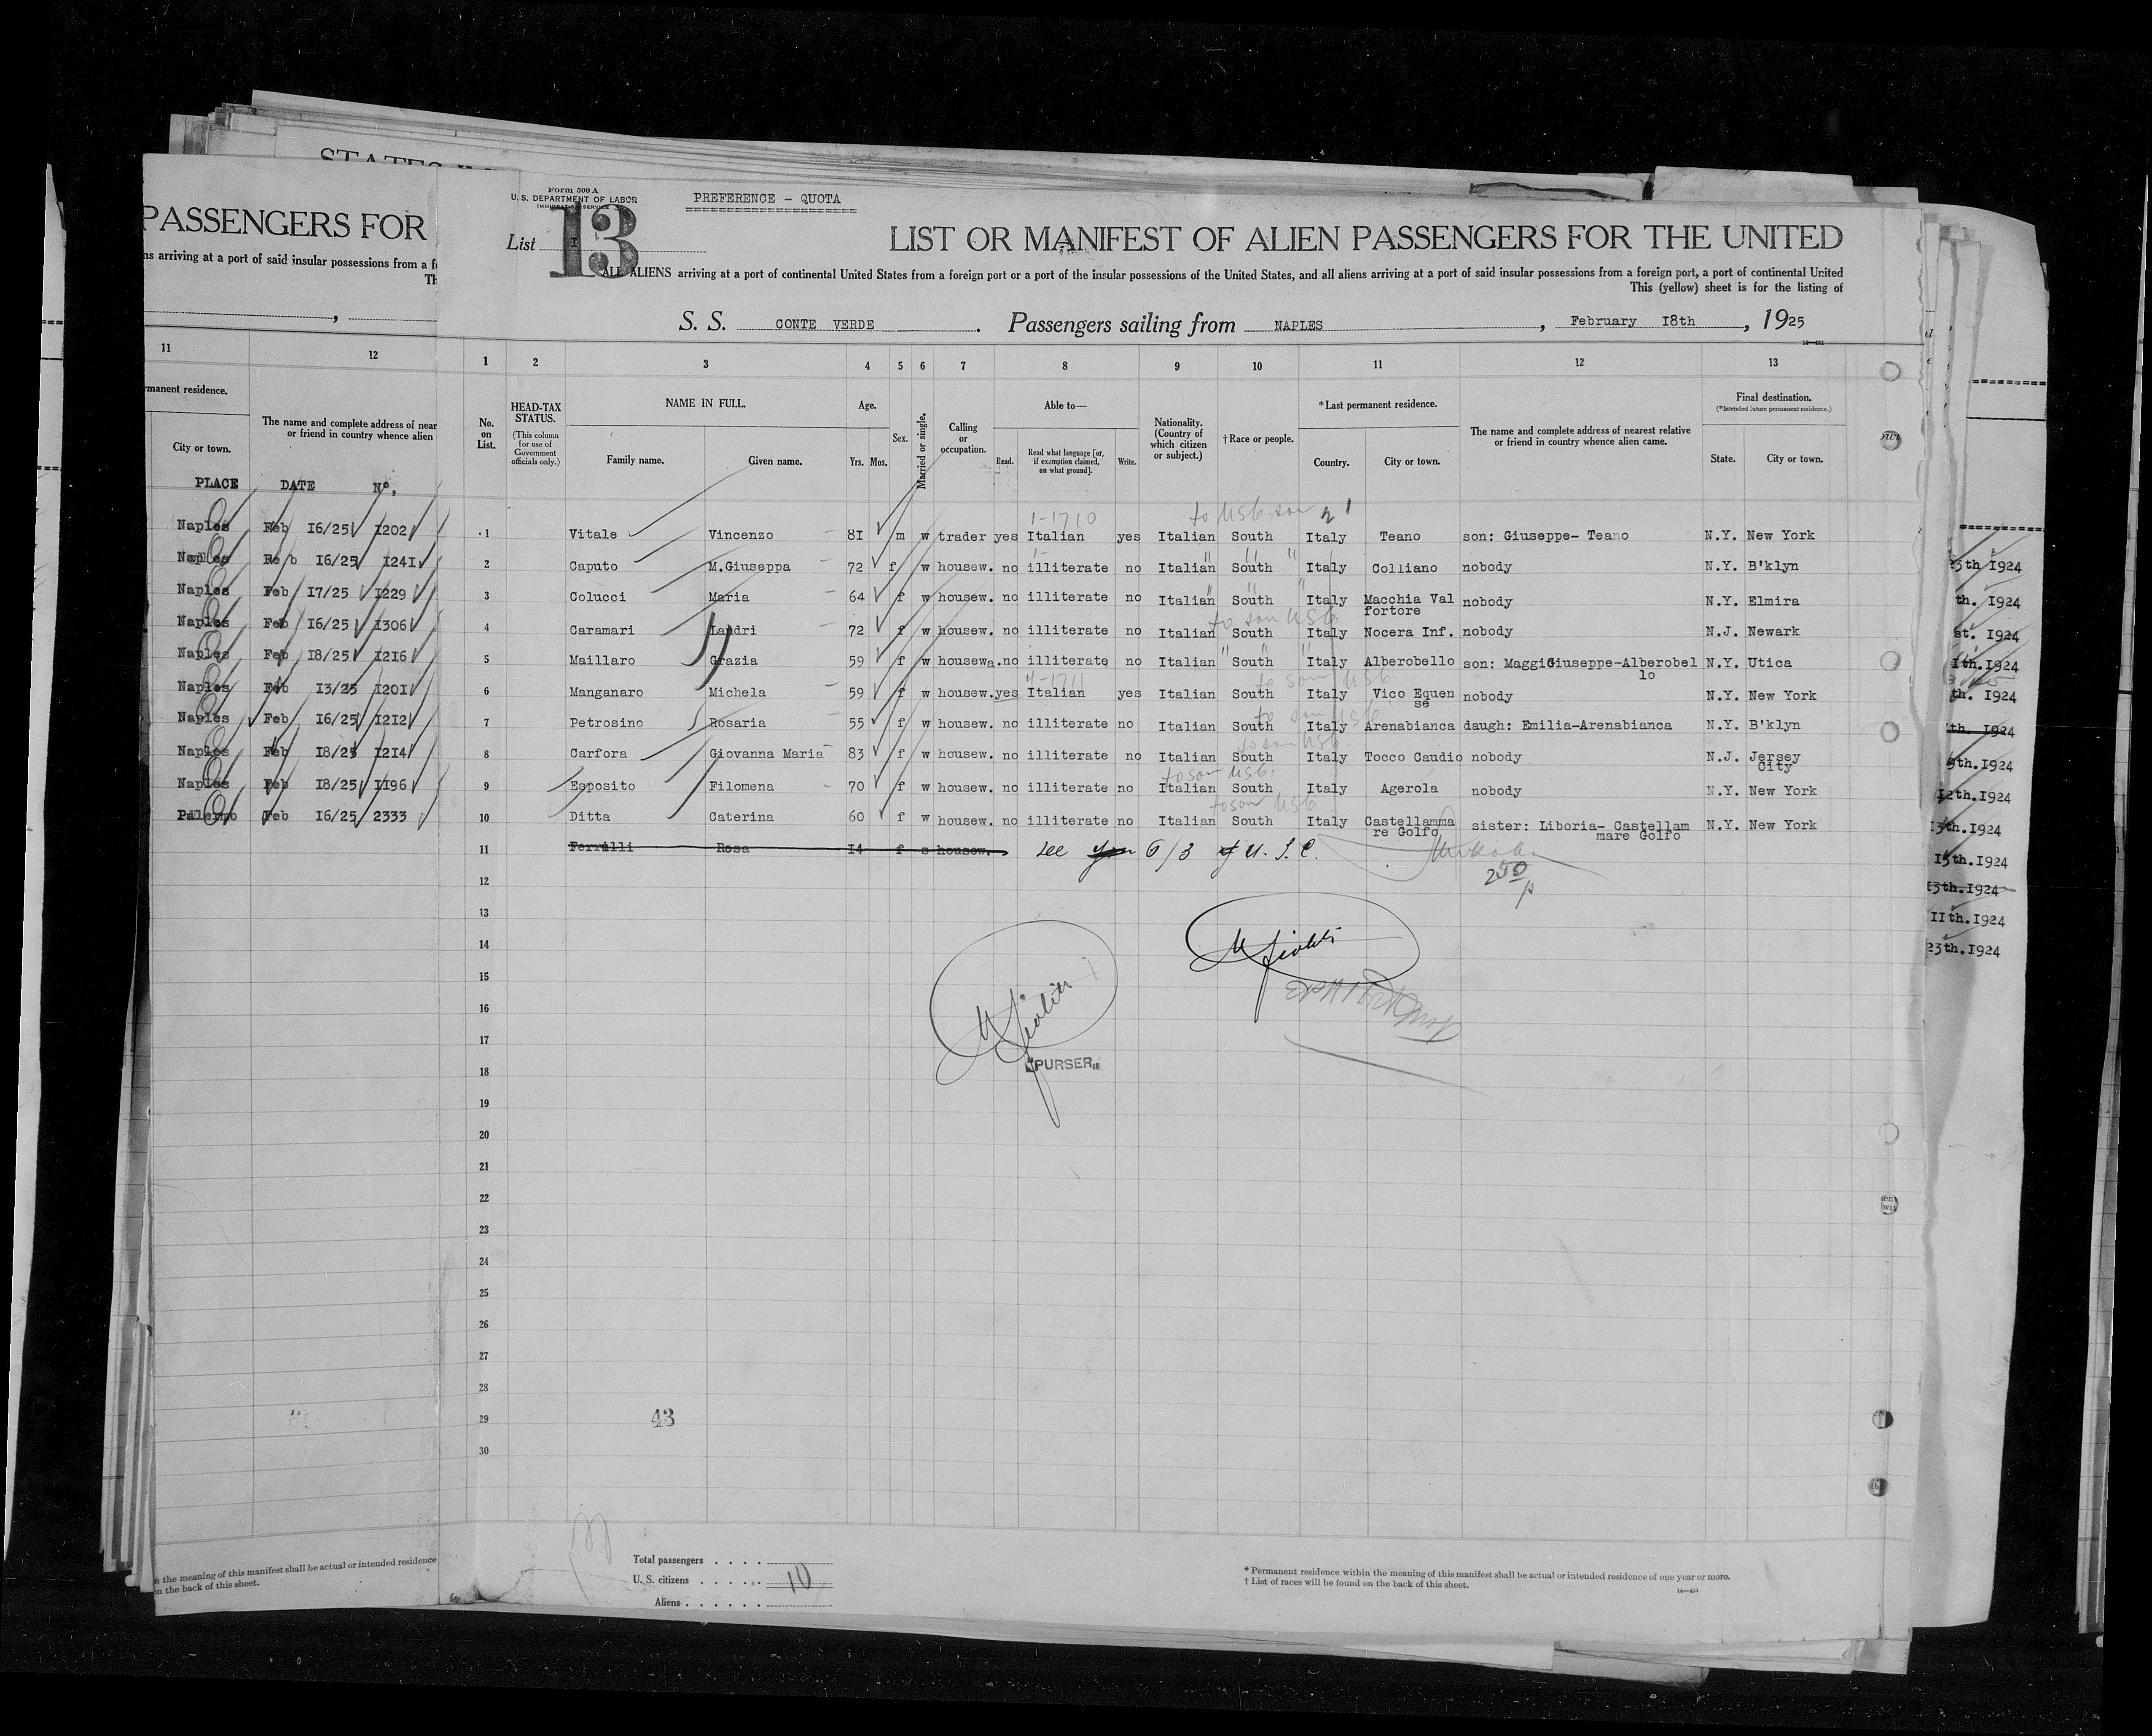 STATES
PASSENGERS FOR
ns arriving at a port of said insular possessions from a f
Th
11 12
rmanent residence.
City or town.
The name and complete address of near
or friend in country whence alien
PLACE DATE Nº.
Naples Feb 16/25 1202
Naples Feb 16/25 1241
Naples Feb 17/25 1229
Naples Feb 16/25 1306
Naples Feb 18/25 1216
Naples Feb 13/25 1201
Naples Feb 16/25 1212
Naples Feb 18/25 1214
Naples Feb 18/25 1196
Palermo Feb 16/25 2333
n the meaning of this manifest shall be actual or intended residence
n the back of this sheet.
Form 500 A
U. S. DEPARTMENT OF LABOR
IMMIGRATION SERVICE
PREFERENCE - QUOTA
List I
13
LIST OR MANIFEST OF ALIEN PASSENGERS FOR THE UNITED
ALL ALIENS arriving at a port of continental United States from a foreign port or a port of the insular possessions of the United States, and all aliens arriving at a port of said insular possessions from a foreign port, a port of continental United
This (yellow) sheet is for the listing of
S. S. CONTE VERDE. Passengers sailing from NAPLES, February 18th, 1925
1 2 3 4 5 6 7 8 9 10 11 12 13
No. on List.
HEAD-TAX STATUS.
(This column for use of Government officials only.)
NAME IN FULL.
Family name. Given name.
Age.
Yrs. Mos.
Sex.
Married or single.
Calling or occupation.
Able to—
Read. Read what language [or, if exemption claimed, on what ground]. Write.
Nationality. (Country of which citizen or subject.)
†Race or people.
*Last permanent residence.
Country. City or town.
The name and complete address of nearest relative or friend in country whence alien came.
Final destination.
(*Intended future permanent residence.)
State. City or town.
1-1710 to USC son
1 Vitale Vincenzo 81 m w trader yes Italian yes Italian South Italy Teano son: Giuseppe- Teano N.Y. New York
2 Caputo M.Giuseppa 72 f w housew. no illiterate no Italian South Italy Colliano nobody N.Y. B'klyn
3 Colucci Maria 64 f w housew. no illiterate no Italian South Italy Macchia Val fortore nobody N.Y. Elmira
to son USC
4 Caramari Landri 72 f w housew. no illiterate no Italian South Italy Nocera Inf. nobody N.J. Newark
5 Maillaro Grazia 59 f w housewa.no illiterate no Italian South Italy Alberobello son: MaggiGiuseppe-Alberobel lo N.Y. Utica
4-1711 to son USC
6 Manganaro Michela 59 f w housew.yes Italian yes Italian South Italy Vico Equen se nobody N.Y. New York
to son USC
7 Petrosino Rosaria 55 f w housew. no illiterate no Italian South Italy Arenabianca daugh: Emilia-Arenabianca N.Y. B'klyn
to son USC
8 Carfora Giovanna Maria 83 f w housew. no illiterate no Italian South Italy Tocco Caudio nobody N.J. Jersey City
to son USC.
9 Esposito Filomena 70 f w housew. no illiterate no Italian South Italy Agerola nobody N.Y. New York
to son USC
10 Ditta Caterina 60 f w housew. no illiterate no Italian South Italy Castellamma re Golfo sister: Liboria- Castellam mare Golfo N.Y. New York
11 Ferrulli Rosa 14 f s housew. see 6/3 of U. S. C.
250
12
13
14
15
16
17
18
PURSER
19
20
21
22
23
24
25
26
27
28
29 43
30
Total passengers
U. S. citizens 10
Aliens
* Permanent residence within the meaning of this manifest shall be actual or intended residence of one year or more.
† List of races will be found on the back of this sheet.
5th 1924
th. 1924
st. 1924
1th.1924
th. 1924
th. 1924
9th.1924
12th.1924
13th.1924
15th.1924
13th.1924
11th.1924
23th.1924